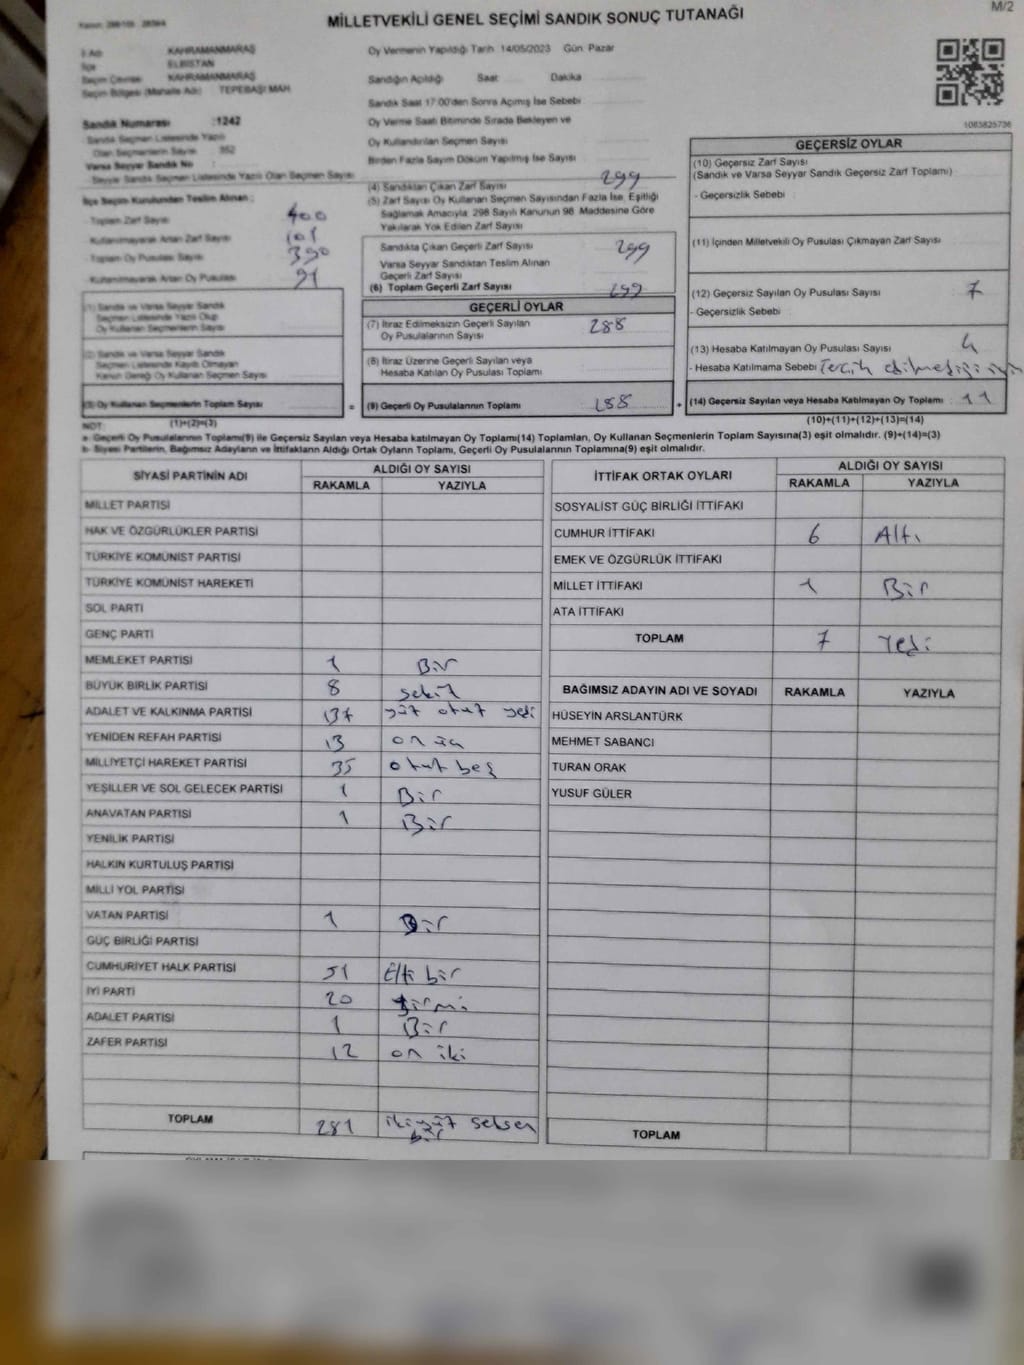 M/2
MİLLETVEKİLİ GENEL SEÇİMİ SANDIK SONUÇ TUTANAĞI
İl Adı KAHRAMANMARAŞ
İlçe ELBİSTAN
Seçim Çevresi KAHRAMANMARAŞ
Seçim Bölgesi (Mahalle Adı) TEPEBAŞI MAH
Sandık Numarası :1242
Sandık Seçmen Listesinde Yazılı
Olan Seçmenlerin Sayısı 352
Varsa Seyyar Sandık No :
Seyyar Sandık Seçmen Listesinde Yazılı Olan Seçmen Sayısı
İlçe Seçim Kurulundan Teslim Alınan ;
- Toplam Zarf Sayısı 400
- Kullanılmayarak Artan Zarf Sayısı 101
- Toplam Oy Pusulası Sayısı 390
- Kullanılmayarak Artan Oy Pusulası 91
(1) Sandık ve Varsa Seyyar Sandık
Seçmen Listesinde Yazılı Olup
Oy Kullanan Seçmenlerin Sayısı
(2) Sandık ve Varsa Seyyar Sandık
Seçmen Listesinde Kayıtlı Olmayan
Kanun Gereği Oy Kullanan Seçmen Sayısı
(3) Oy Kullanan Seçmenlerin Toplam Sayısı
(1)+(2)=(3)
Oy Vermenin Yapıldığı Tarih 14/05/2023 Gün Pazar
Sandığın Açıldığı Saat Dakika
Sandık Saat 17:00'den Sonra Açımış İse Sebebi
Oy Verme Saati Bitiminde Sırada Bekleyen ve
Oy Kullandırılan Seçmen Sayısı
Birden Fazla Sayım Döküm Yapılmış İse Sayısı
(4) Sandıktan Çıkan Zarf Sayısı 299
(5) Zarf Sayısı Oy Kullanan Seçmen Sayısından Fazla İse, Eşitliği
Sağlamak Amacıyla 298 Sayılı Kanunun 98. Maddesine Göre
Yakılarak Yok Edilen Zarf Sayısı
Sandıkta Çıkan Geçerli Zarf Sayısı 299
Varsa Seyyar Sandıktan Teslim Alınan
Geçerli Zarf Sayısı
(6) Toplam Geçerli Zarf Sayısı 299
GEÇERLİ OYLAR
(7) İtiraz Edilmeksizin Geçerli Sayılan
Oy Pusulalarının Sayısı 288
(8) İtiraz Üzerine Geçerli Sayılan veya
Hesaba Katılan Oy Pusulası Toplamı
= (9) Geçerli Oy Pusulalarının Toplamı 288 +
1083825736
GEÇERSİZ OYLAR
(10) Geçersiz Zarf Sayısı
(Sandık ve Varsa Seyyar Sandık Geçersiz Zarf Toplamı)
- Geçersizlik Sebebi
(11) İçinden Milletvekili Oy Pusulası Çıkmayan Zarf Sayısı
(12) Geçersiz Sayılan Oy Pusulası Sayısı 7
- Geçersizlik Sebebi
(13) Hesaba Katılmayan Oy Pusulası Sayısı 4
- Hesaba Katılmama Sebebi Tercih edilmediği için
(14) Geçersiz Sayılan veya Hesaba Katılmayan Oy Toplamı 11
(10)+(11)+(12)+(13)=(14)
NOT:
a- Geçerli Oy Pusulalarının Toplamı(9) ile Geçersiz Sayılan veya Hesaba katılmayan Oy Toplamı(14) Toplamları, Oy Kullanan Seçmenlerin Toplam Sayısına(3) eşit olmalıdır. (9)+(14)=(3)
b- Siyasi Partilerin, Bağımsız Adayların ve İttifakların Aldığı Ortak Oyların Toplamı, Geçerli Oy Pusulalarının Toplamına(9) eşit olmalıdır.
SİYASİ PARTİNİN ADI ALDIĞI OY SAYISI
RAKAMLA YAZIYLA
MİLLET PARTİSİ
HAK VE ÖZGÜRLÜKLER PARTİSİ
TÜRKİYE KOMÜNİST PARTİSİ
TÜRKİYE KOMÜNİST HAREKETİ
SOL PARTİ
GENÇ PARTİ
MEMLEKET PARTİSİ 1 Bir
BÜYÜK BİRLİK PARTİSİ 8 sekiz
ADALET VE KALKINMA PARTİSİ 137 yüz otuz yedi
YENİDEN REFAH PARTİSİ 13 on üç
MİLLİYETÇİ HAREKET PARTİSİ 35 otuz beş
YEŞİLLER VE SOL GELECEK PARTİSİ 1 Bir
ANAVATAN PARTİSİ 1 Bir
YENİLİK PARTİSİ
HALKIN KURTULUŞ PARTİSİ
MİLLİ YOL PARTİSİ
VATAN PARTİSİ 1 Bir
GÜÇ BİRLİĞİ PARTİSİ
CUMHURİYET HALK PARTİSİ 51 Elli bir
İYİ PARTİ 20 yirmi
ADALET PARTİSİ 1 Bir
ZAFER PARTİSİ 12 on iki
TOPLAM 281 ikiyüz seksen
bir
İTTİFAK ORTAK OYLARI ALDIĞI OY SAYISI
RAKAMLA YAZIYLA
SOSYALİST GÜÇ BİRLİĞİ İTTİFAKI
CUMHUR İTTİFAKI 6 Altı
EMEK VE ÖZGÜRLÜK İTTİFAKI
MİLLET İTTİFAKI 1 Bir
ATA İTTİFAKI
TOPLAM 7 Yedi
BAĞIMSIZ ADAYIN ADI VE SOYADI RAKAMLA YAZIYLA
HÜSEYİN ARSLANTÜRK
MEHMET SABANCI
TURAN ORAK
YUSUF GÜLER
TOPLAM